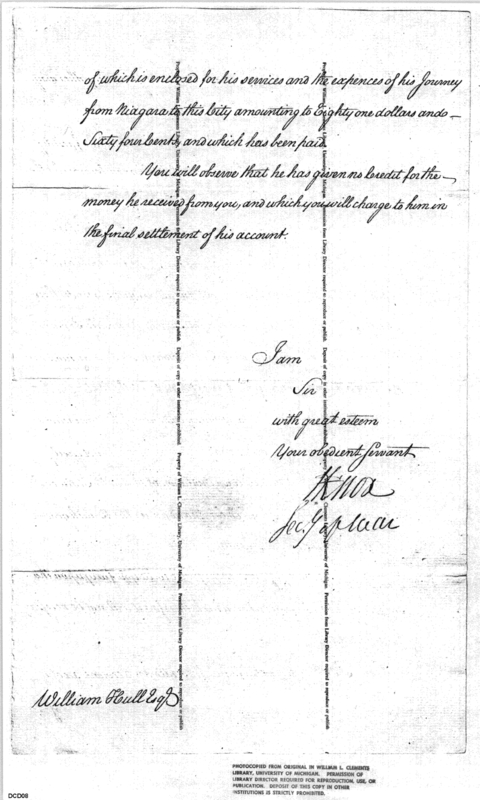 of which is enclosed for his services and the expences of his Journey
from Niagara to this City amounting to Eighty one dollars and
Sixty four Cents, and which has been paid.
You will observe that he has given no Credit for the
money he received from you, and which you will charge to him in
the final settlement of his account.
I am
Sir
with great esteem
Your obedient Servant
HKnox
Secy of war
William Hull Esqr
Property of William L. Clements Library, University of Michigan. Permission from Library Director required to reproduce or publish. Deposit of this copy in other institutions prohibited.
PHOTOCOPIED FROM ORIGINAL IN WILLIAM L. CLEMENTS
LIBRARY, UNIVERSITY OF MICHIGAN. PERMISSION OF
LIBRARY DIRECTOR REQUIRED FOR REPRODUCTION, USE, OR
PUBLICATION. DEPOSIT OF THIS COPY IN OTHER
INSTITUTIONS IS STRICTLY PROHIBITED.
DCD08